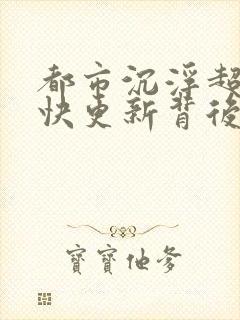 都市沉浮超
快更新背後
寶寶他爹